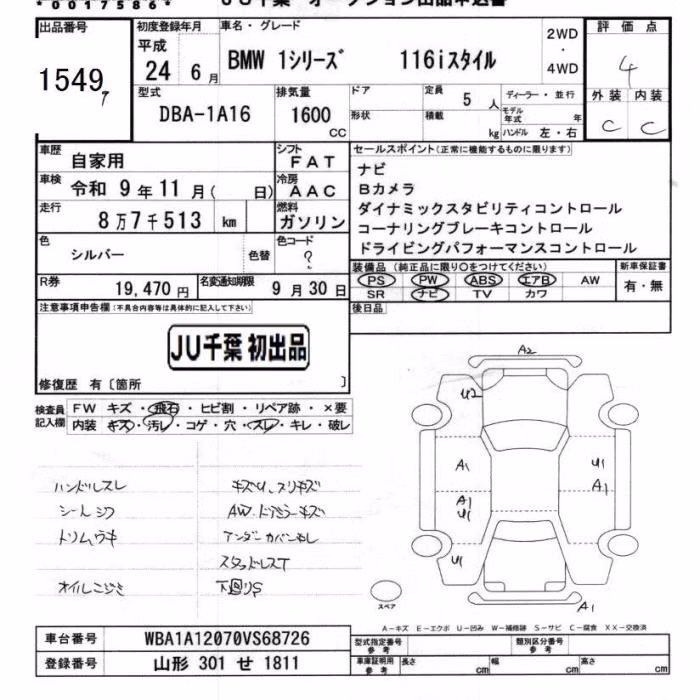 *0017586*
JU千葉 オークション出品申込書
出品番号
1549
初度登録年月
平成
24 6月
車名・グレード
BMW 1シリーズ 116iスタイル
2WD
・
4WD
評価点
4
外装 内装
C C
型式
DBA-1A16
排気量
1600
CC
ドア
形状
定員
5人
積載
kg
ディーラー・並行
モデル年式 年
ハンドル 左・右
車歴
自家用
シフト
FAT
車検
令和 9年11月( 日)
冷房
AAC
走行
8万7千513 km
燃料
ガソリン
色
シルバー
色替
色コード
?
セールスポイント(正常に機能するものに限ります)
ナビ
Bカメラ
ダイナミックスタビリティコントロール
コーナリングブレーキコントロール
ドライビングパフォーマンスコントロール
R券
19,470円
名変通知期限
9月30日
装備品(純正品に限り○をつけてください)
PS PW ABS エアB AW
SR ナビ TV カワ
新車保証書
有・無
注意事項申告欄(不具合内容等は具体的に記入して下さい)
JU千葉 初出品
修復歴 有〔箇所 〕
後日品
検査員
記入欄
FW キズ・飛石・ヒビ割・リペア跡・×要
内装 キズ・汚レ・コゲ・穴・スレ・キレ・破レ
ハンドルスレ
シートシワ
トリムウキ
オイルにじみ
キズU、スリキズ
AW、ドアミラーキズ
アンダーカバー無し
スタッドレスT
下回りS
A2
U2
A1
A1
U1
U1
U1
A1
A1
スペア
A−キズ E−エクボ U−凹み W−補修跡 S−サビ C−腐食 XX−交換済
車台番号
WBA1A12070VS68726
登録番号
山形 301 せ 1811
型式指定番号
参考
類別区分番号
参考
車庫証明用
参考
長さ cm
幅 cm
高さ cm